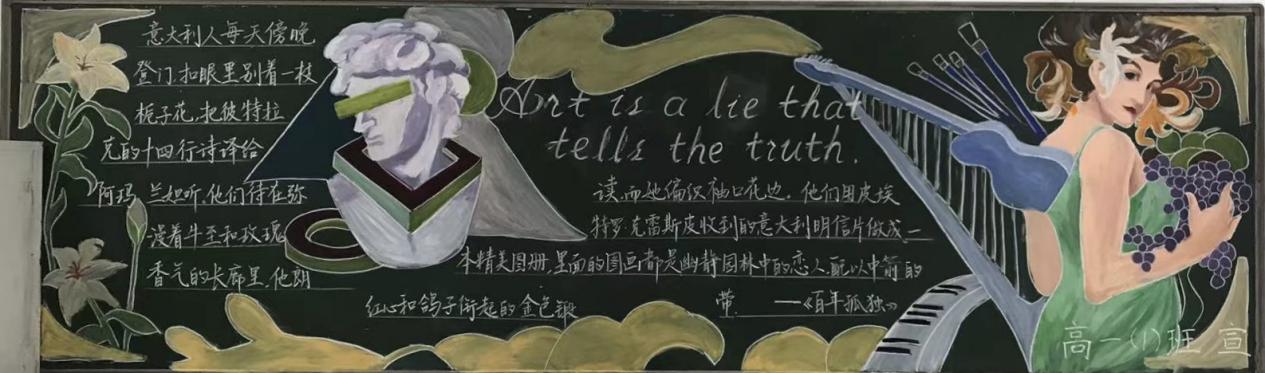 意大利人每天傍晚
登门,扣眼里别着一枝
栀子花,把彼特拉
克的十四行诗译给
阿玛兰妲听,他们待在弥
漫着牛至和玫瑰
香气的长廊里,他朗
Art is a lie that
tells the truth.
读,而她编织袖口花边。他们用皮埃
特罗·克雷斯皮收到的意大利明信片做成一
本精美图册,里面的图画都是幽静园林中的恋人,配以中箭的
红心和鸽子衔起的金色缎
带. ——《百年孤独》
高一(1)班 宣